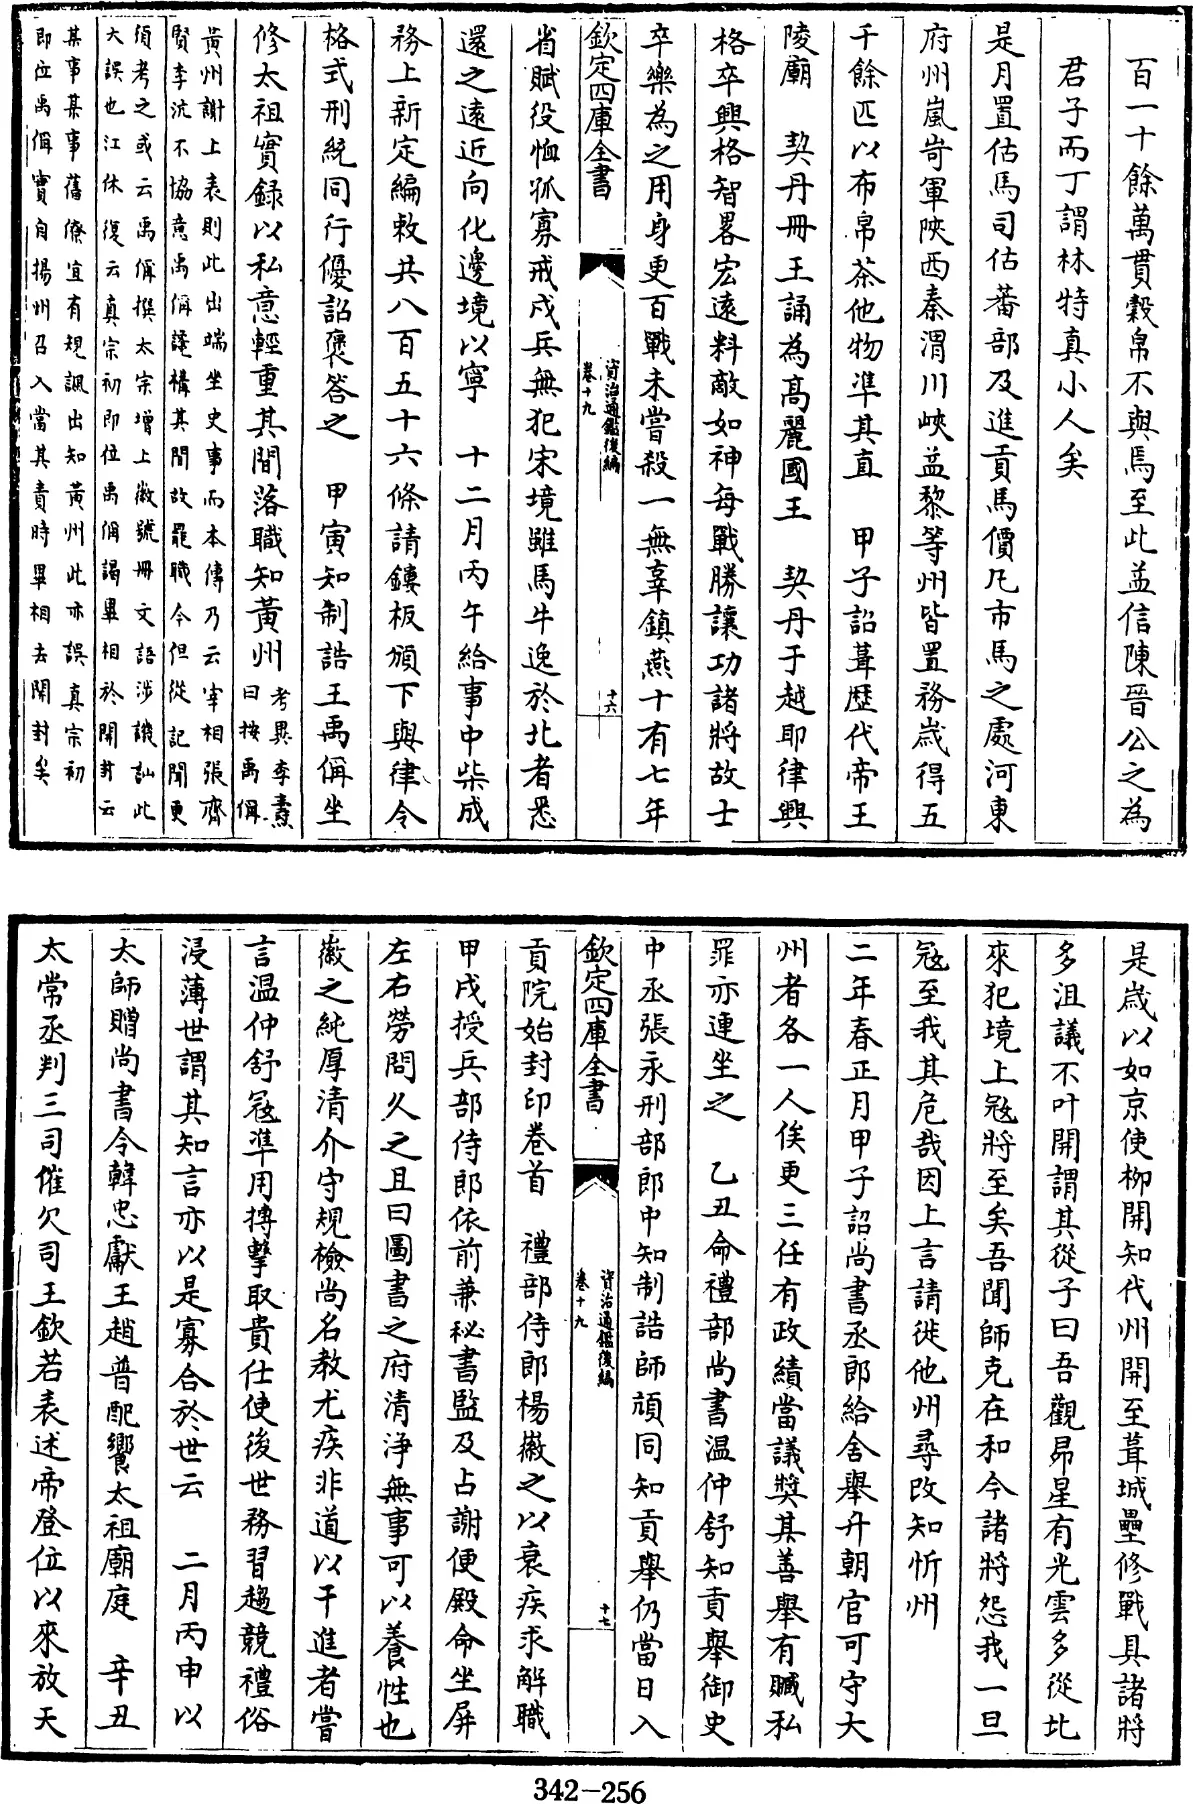 百一十餘萬貫穀帛不與焉至此益信陳晉公之為
君子而丁謂林特真小人矣
是月置估馬司估蕃部及進貢馬價凡市馬之處河東
府州嵐岢軍陜西秦渭川峽益黎等州皆置務歲得五
千餘匹以布帛茶他物準其直　甲子詔葺歷代帝王
陵廟　契丹冊王誦為高麗國王　契丹于越耶律興
格卒興格智畧宏遠料敵如神每戰勝讓功諸將故士
卒樂為之用身更百戰未嘗殺一無辜鎮燕十有七年
欽定四庫全書
資治通鑑後編
卷十九
十六
省賦役恤孤寡戒戍兵無犯宋境雖馬牛逸於北者悉
還之遠近向化邊境以寧　十二月丙午給事中柴成
務上新定編敕共八百五十六條請鏤板頒下與律令
格式刑統同行優詔褒答之　甲寅知制誥王禹偁坐
修太祖實録以私意輕重其間落職知黃州
考異李燾
曰按禹偁
黃州謝上表則此出端坐史事而本傳乃云宰相張齊
賢李沆不協意禹偁議構其間故罷職今但從記聞更
須考之或云禹偁撰太宗增上徽號冊文語涉譏訕此
大誤也江休復云真宗初即位禹偁謁畢相於開封云
某事某事舊僚宜有規諷出知黃州此亦誤真宗初
即位禹偁實自揚州召入當其責時畢相去開封矣
是歲以如京使柳開知代州開至葺城壘修戰具諸將
多沮議不叶開謂其從子曰吾觀昴星有光雲多從北
來犯境上寇將至矣吾聞師克在和今諸將怨我一旦
寇至我其危哉因上言請徙他州尋改知忻州
二年春正月甲子詔尚書丞郎給舍舉升朝官可守大
州者各一人俟更三任有政績當議獎其善舉有贓私
罪亦連坐之　乙丑命禮部尚書温仲舒知貢舉御史
中丞張永刑部郎中知制誥師頏同知貢舉仍當日入
欽定四庫全書
資治通鑑後編
卷十九
十七
貢院始封印卷首　禮部侍郎楊徽之以衰疾求解職
甲戌授兵部侍郎依前兼秘書監及占謝便殿命坐屏
左右勞問久之且曰圖書之府清浄無事可以養性也
徽之純厚清介守規檢尚名教尤疾非道以干進者嘗
言温仲舒寇準用搏擊取貴仕使後世務習趨競禮俗
浸薄世謂其知言亦以是寡合於世云　二月丙申以
太師贈尚書令韓忠獻王趙普配饗太祖廟庭　辛丑
太常丞判三司催欠司王欽若表述帝登位以來放天
342-256